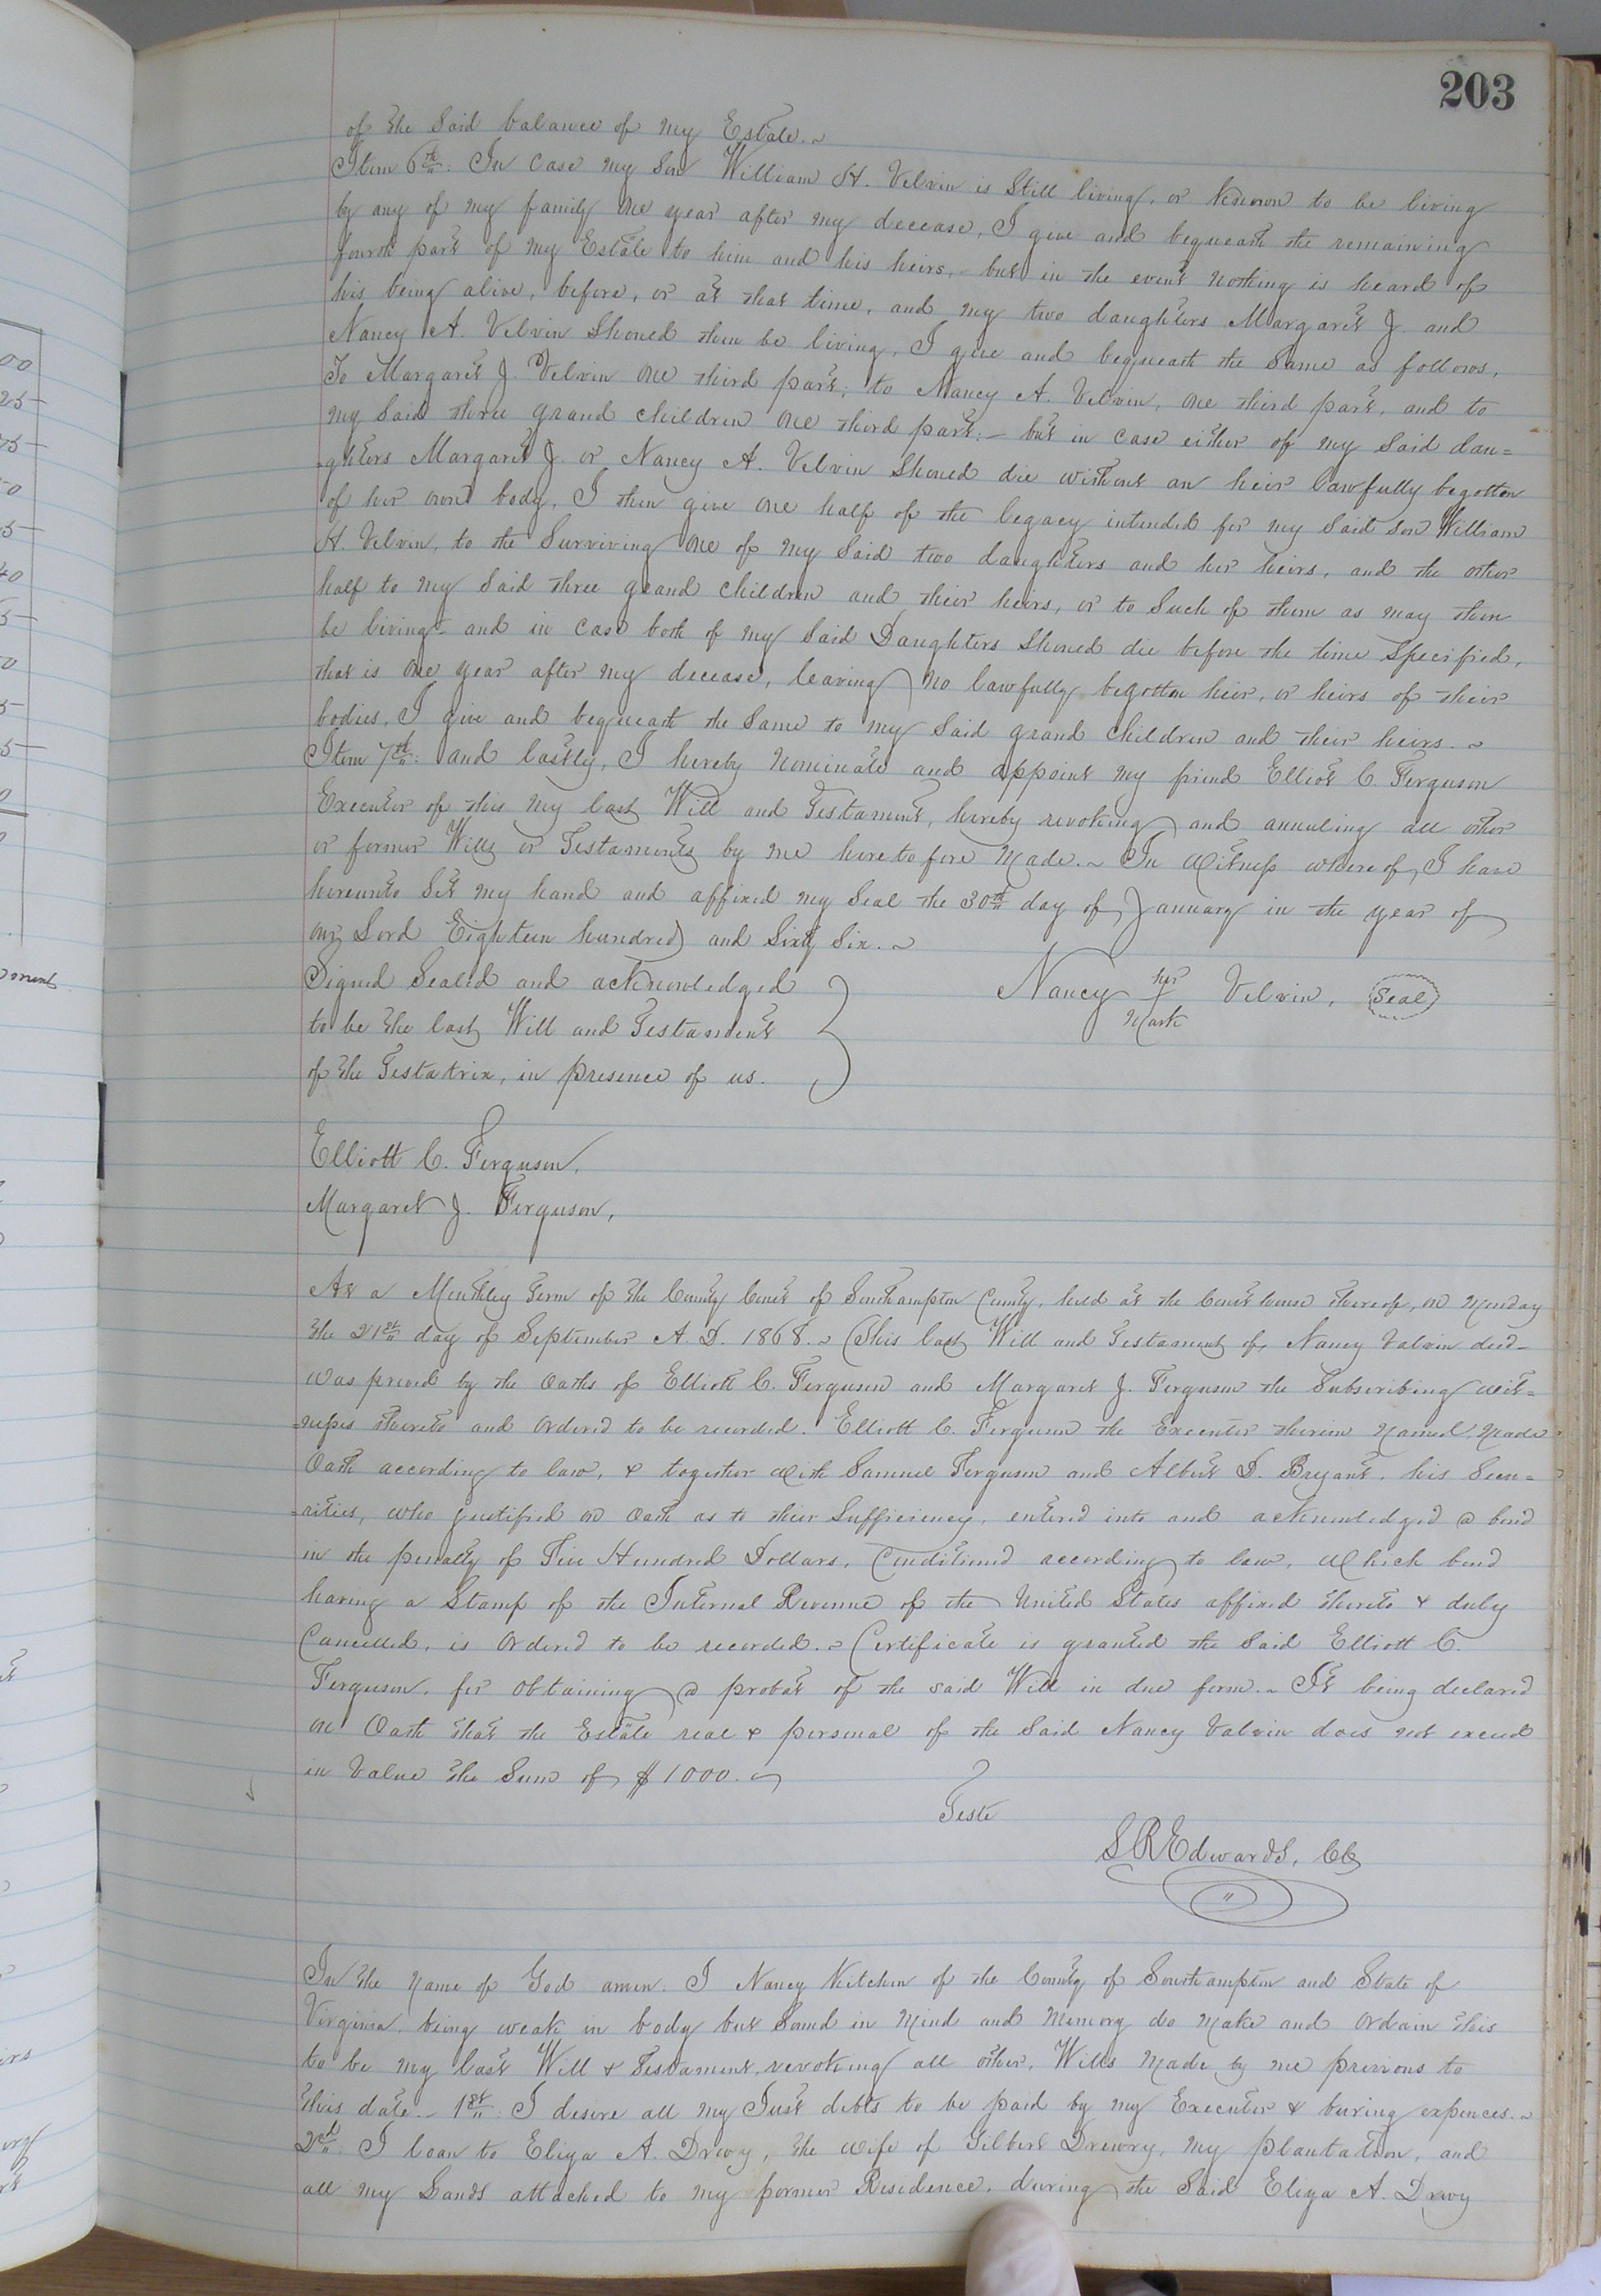 203
of the Said balance of my Estate.~
Item 6th: In case my Son William H. Velvin is Still living, or Known to be living
by any of my family one year after my decease, I give and bequeath the remaining
fourth part of my Estate to him and his heirs, - but in the event nothing is heard of
his being alive, before, or at that time, and my two daughters Margaret J. and
Nancy A. Velvin Should then be living, I give and bequeath the Same as follows,
To Margaret J. Velvin one third part; to Nancy A. Velvin, one third part, and to
my Said three grand children one third part:- but in case either of my Said dau=
-ghters Margaret J. or Nancy A. Velvin Should die without an heir lawfully begotten
of her own body, I then give one half of the legacy intended for my Said son William
H. Velvin, to the Surviving one of my Said two daughters and her heirs, and the other
half to my Said three grand children and their heirs, or to Such of them as may then
be living - and in case both of my Said Daughters Should die before the time Specified,
that is one year after my decease, leaving no lawfully begotten heir, or heirs of their
bodies, I give and bequeath the Same to my Said grand children and their heirs.~
Item 7th: and lastly, I hereby nominate and appoint my friend Elliot C. Ferguson
Executor of this my last Will and Testament, hereby revoking and annuling all other
or former Wills or Testaments by me heretofore made.~ In Witness whereof, I have
hereunto Set my hand and affixed my Seal the 30th day of January in the year of
our Lord Eighteen hundred and Sixty Six.~
Signed Sealed and acknowledged
to be the last Will and Testament
of the Testatrix, in presence of us.
Nancy her + mark Velvin, Seal
Elliott C. Ferguson,
Margaret J. Ferguson,
At a Monthly Term of the County Court of Southampton County, held at the Court house thereof, on Monday
the 21st day of September A. D. 1868.~ This last Will and Testament of Nancy Valvin decd-
was proved by the Oaths of Elliott C. Ferguson and Margaret J. Ferguson the Subscribing wit=
=nesses thereto and Ordered to be recorded. Elliott C. Ferguson the Executor therein Named, Made
Oath according to law, & together with Samuel Ferguson and Albert D. Bryant, his Secu=
=rities, who justified on Oath as to their Sufficiency, entered into and acknowledged a bond
in the penalty of Five Hundred Dollars, Conditioned according to law, Which bond
having a Stamp of the Internal Revenue of the United States affixed thereto & duly
Cancelled, is Ordered to be recorded.~ Certificate is granted the Said Elliott C.
Ferguson, for obtaining a probat of the said Will in due form.~ It being declared
on Oath that the Estate real & personal of the Said Nancy Valvin does not exceed
in Value the Sum of $1000.~
Teste
S R Edwards, CC
In the Name of God amen. I Nancy Kitchen of the County of Southampton and State of
Virginia, being weak in body but Sound in Mind and Memory do Make and Ordain this
to be my last Will & Testament, revoking all other, Wills Made by me previous to
this date.- 1st: I desire all my Just debts to be paid by my Executor & buring expences.~
2nd: I loan to Eliza A. Drewy, the wife of Gilbert Drewry, my plantation, and
all my Lands attached to my former Residence, during the Said Eliza A. Drewy